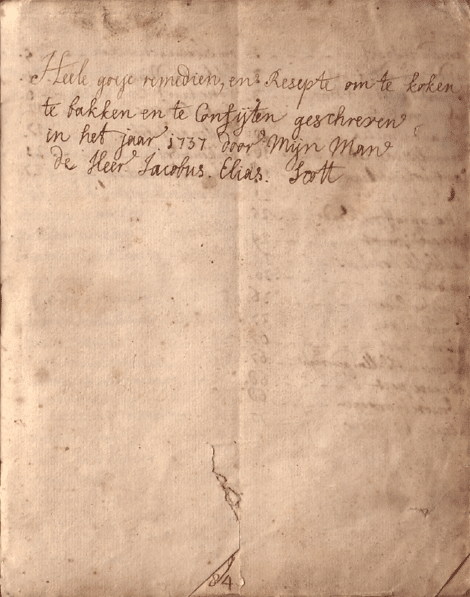 Heele goeje remedien, en Resepte om te koken
te bakken en te Confyten geschreven
in het jaar 1737 door Mijn Man
de Heer Jacobus. Elias. Scott
84